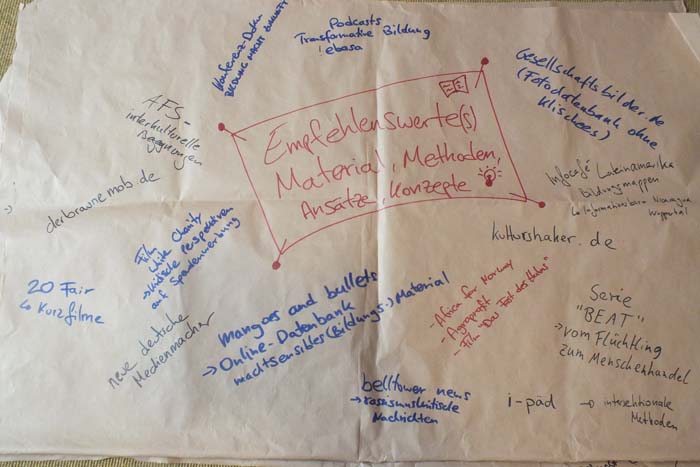 Konferenz-Doku
BILDUNG MACHT ZUKUNFT
Podcasts
Transformative Bildung
! ebasa
Gesellschaftsbilder.de
(Fotodatenbank ohne
Klischees)
AFS-
interkulturelle
Begegnungen
Empfehlenswerte(s)
Material, Methoden,
Ansätze, Konzepte
Infocafé Lateinamerika
Bildungsmappen
↳ Informationsbüro Nicaragua
Wuppertal
derbraunemob.de
Film
White Charity
→ kritische Perspektiven
auf Spendenwerbung
kulturshaker.de
20 Fair
↳ Kurzfilme
neue deutsche
Medienmacher
mangoes and bullets
→ Online-Datenbank
machtsensibles (Bildungs-)Material
- Africa for Norway
- Agraprofit
- Film "Das Fest des Huhns"
Serie
"BEAT"
→ vom Flüchtling
zum Menschenhandel
belltower news
→ rassismuskritische
Nachrichten
i-päd → intersektionale
Methoden